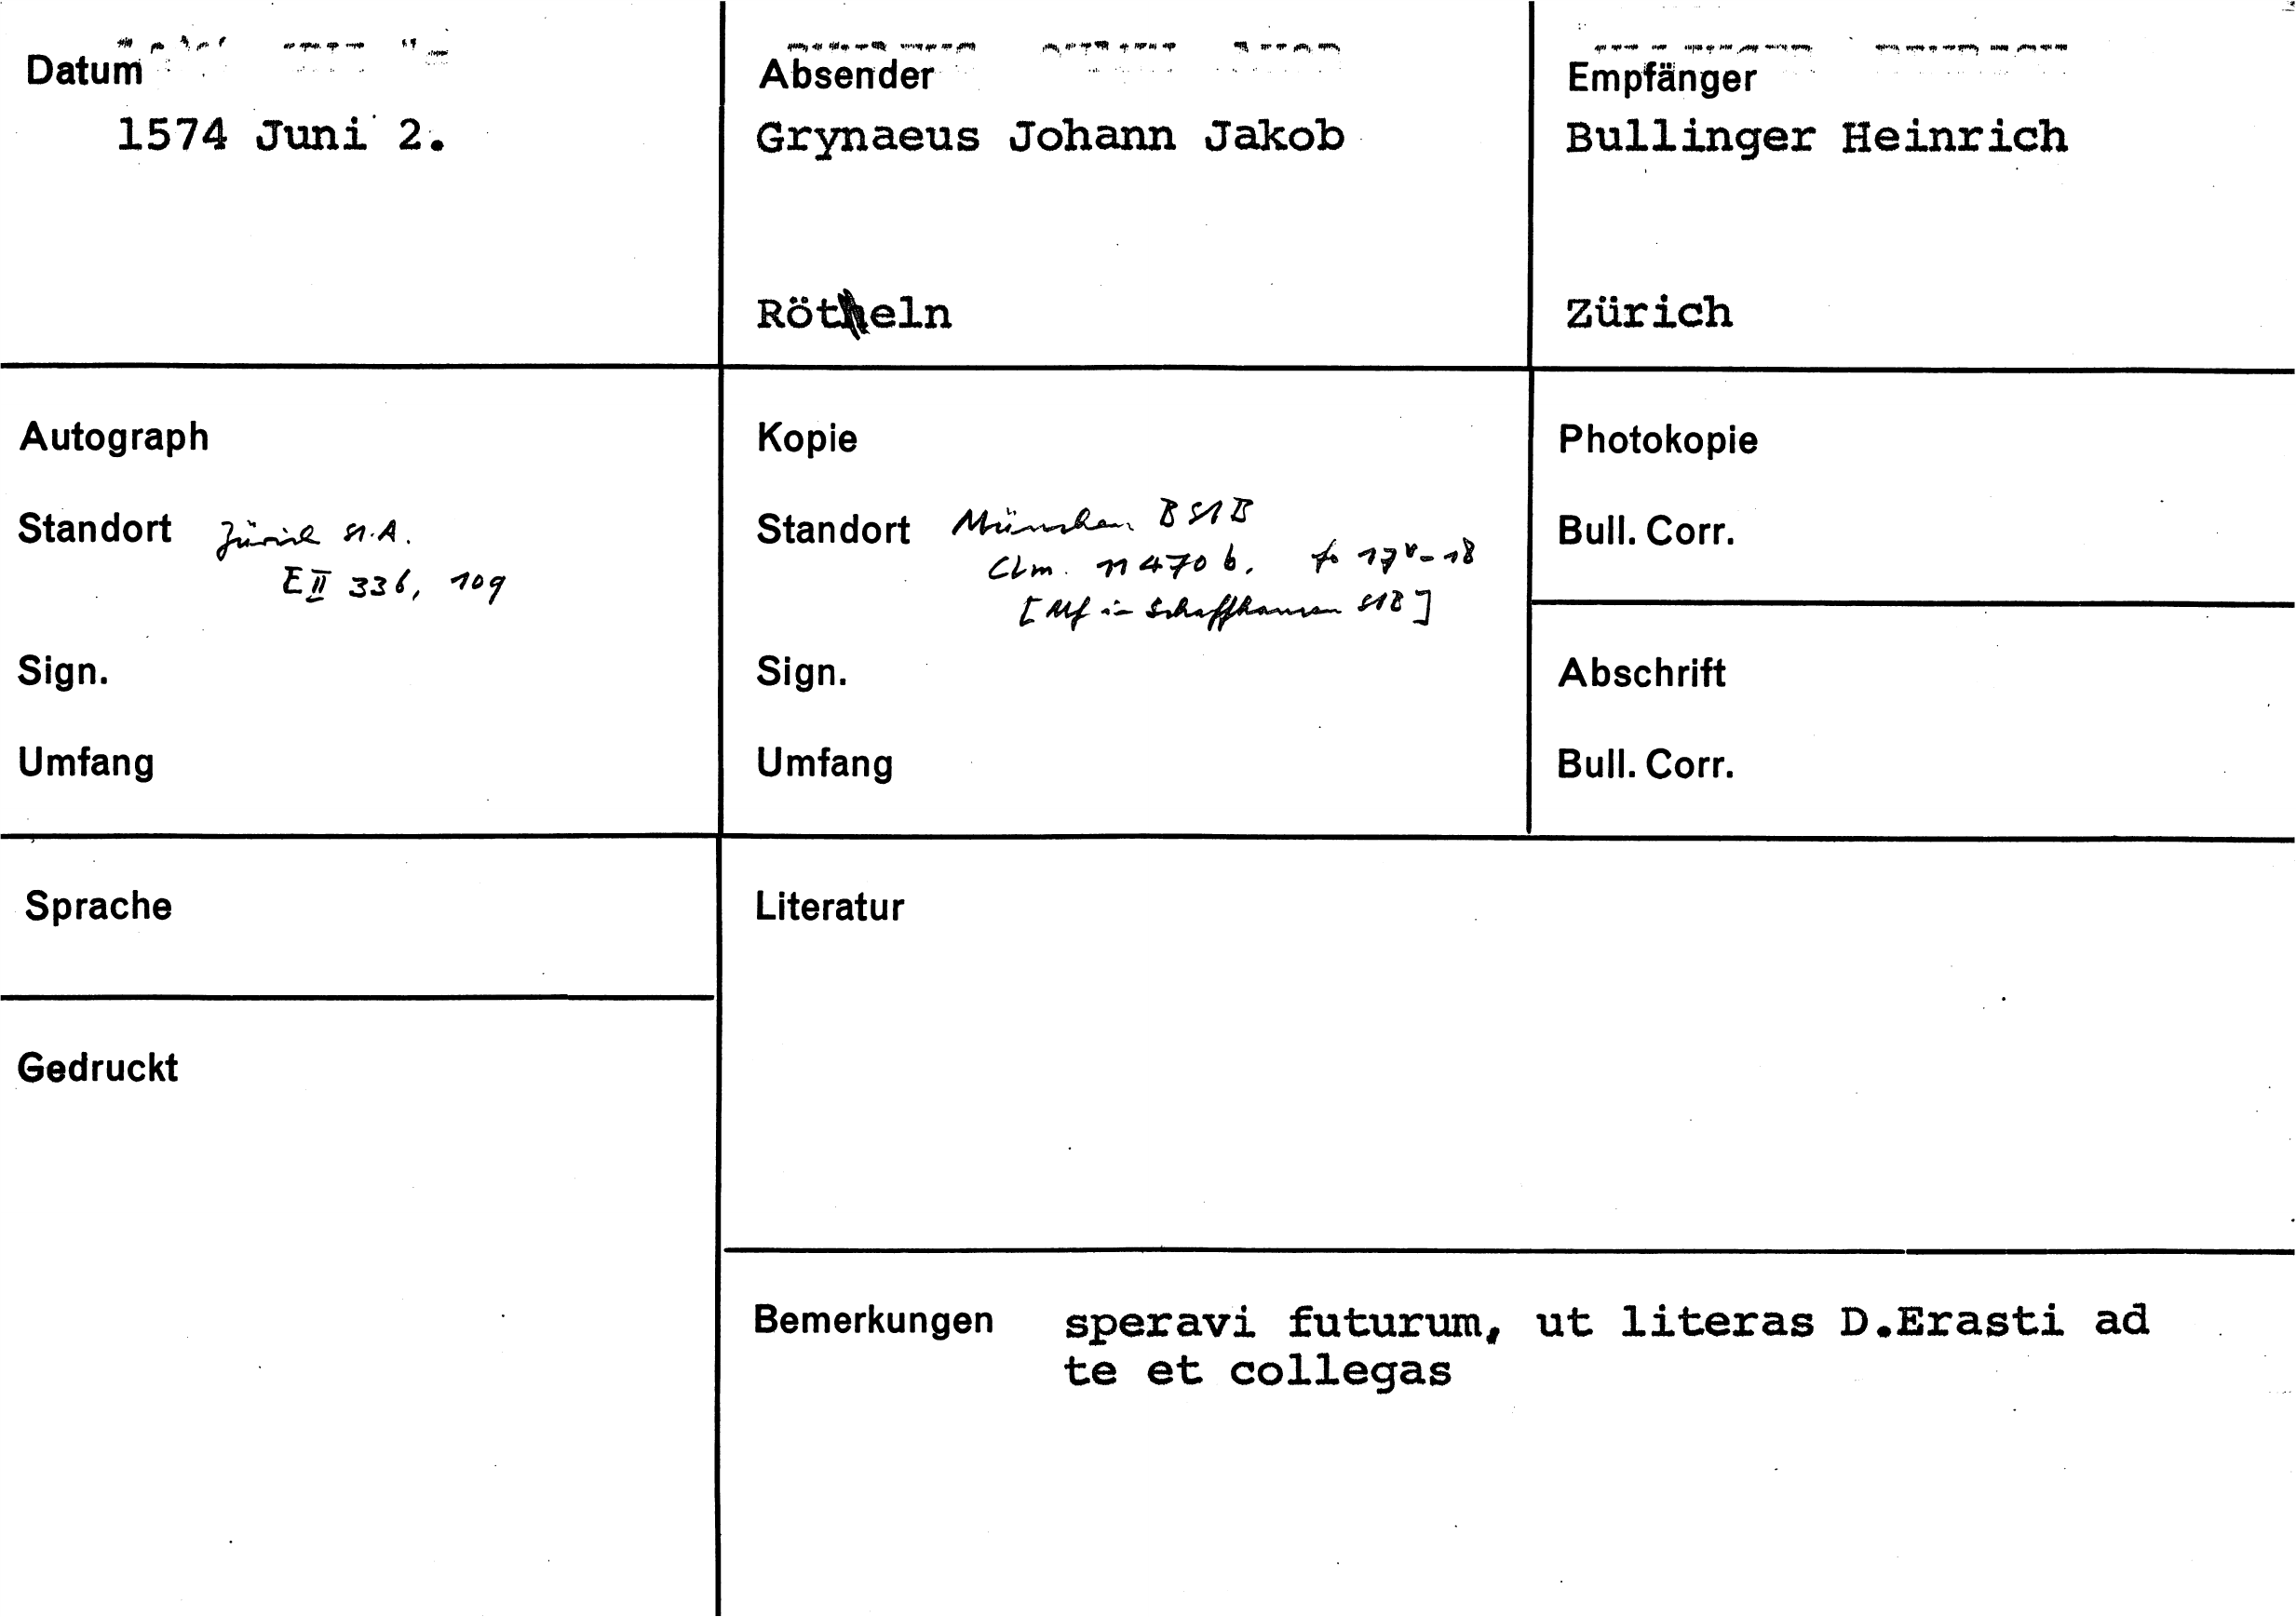 Datum
1574 Juni 2.
Absender
Grynaeus Johann Jakob
Röteln
Empfänger
Bullinger Heinrich
Zürich
Autograph
Standort Zürich St.A.
E II 336, 109
Sign.
Umfang
Kopie
Standort München BStB
Clm. 11470 b, fo 17v-18
[Mf in Schaffhausen StB]
Sign.
Umfang
Photokopie
Bull. Corr.
Abschrift
Bull. Corr.
Sprache
Literatur
Gedruckt
Bemerkungen speravi futurum, ut literas D.Erasti ad
te et collegas